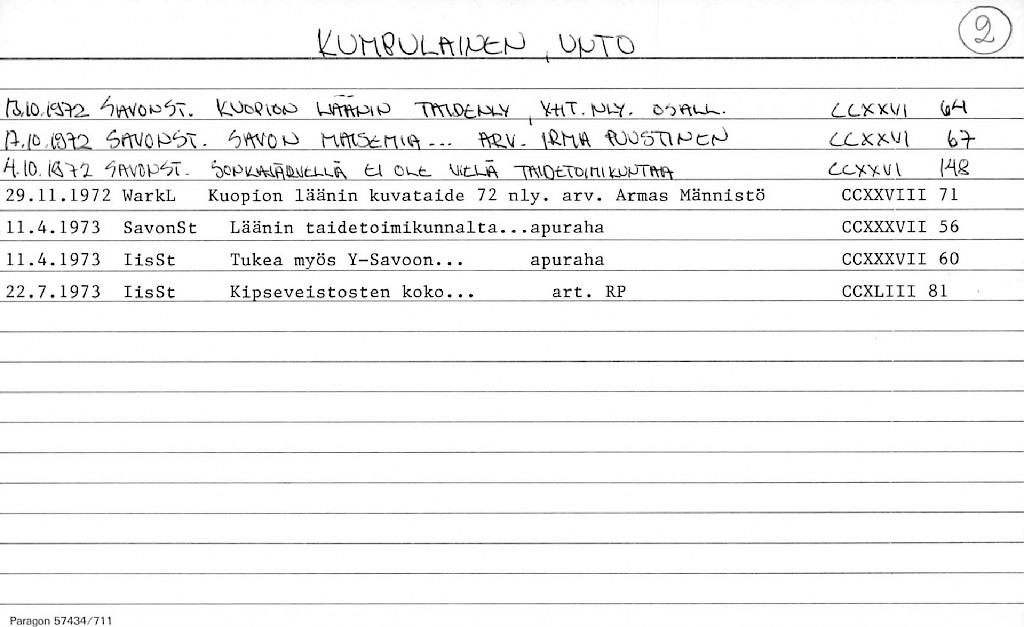 KUMPULAINEN, UNTO
2
13.10.1972 SAVONST. KUOPION LÄÄNIN TAIDENLY, YHT. NLY. OSALL. CCXXVI 64
17.10.1972 SAVONST. SAVON MAISEMIA... ARV. IRMA PUUSTINEN CCXXVI 67
4.10.1972 SAVONST. SONKAJÄRVELLÄ EI OLE VIELÄ TAIDETOIMIKUNTAA CCXXVI 148
29.11.1972 WarkL Kuopion läänin kuvataide 72 nly. arv. Armas Männistö CCXXVIII 71
11.4.1973 SavonSt Läänin taidetoimikunnalta...apuraha CCXXXVII 56
11.4.1973 IisSt Tukea myös Y-Savoon... apuraha CCXXXVII 60
22.7.1973 IisSt Kipseveistosten koko... art. RP CCXLIII 81
Paragon 57434/711